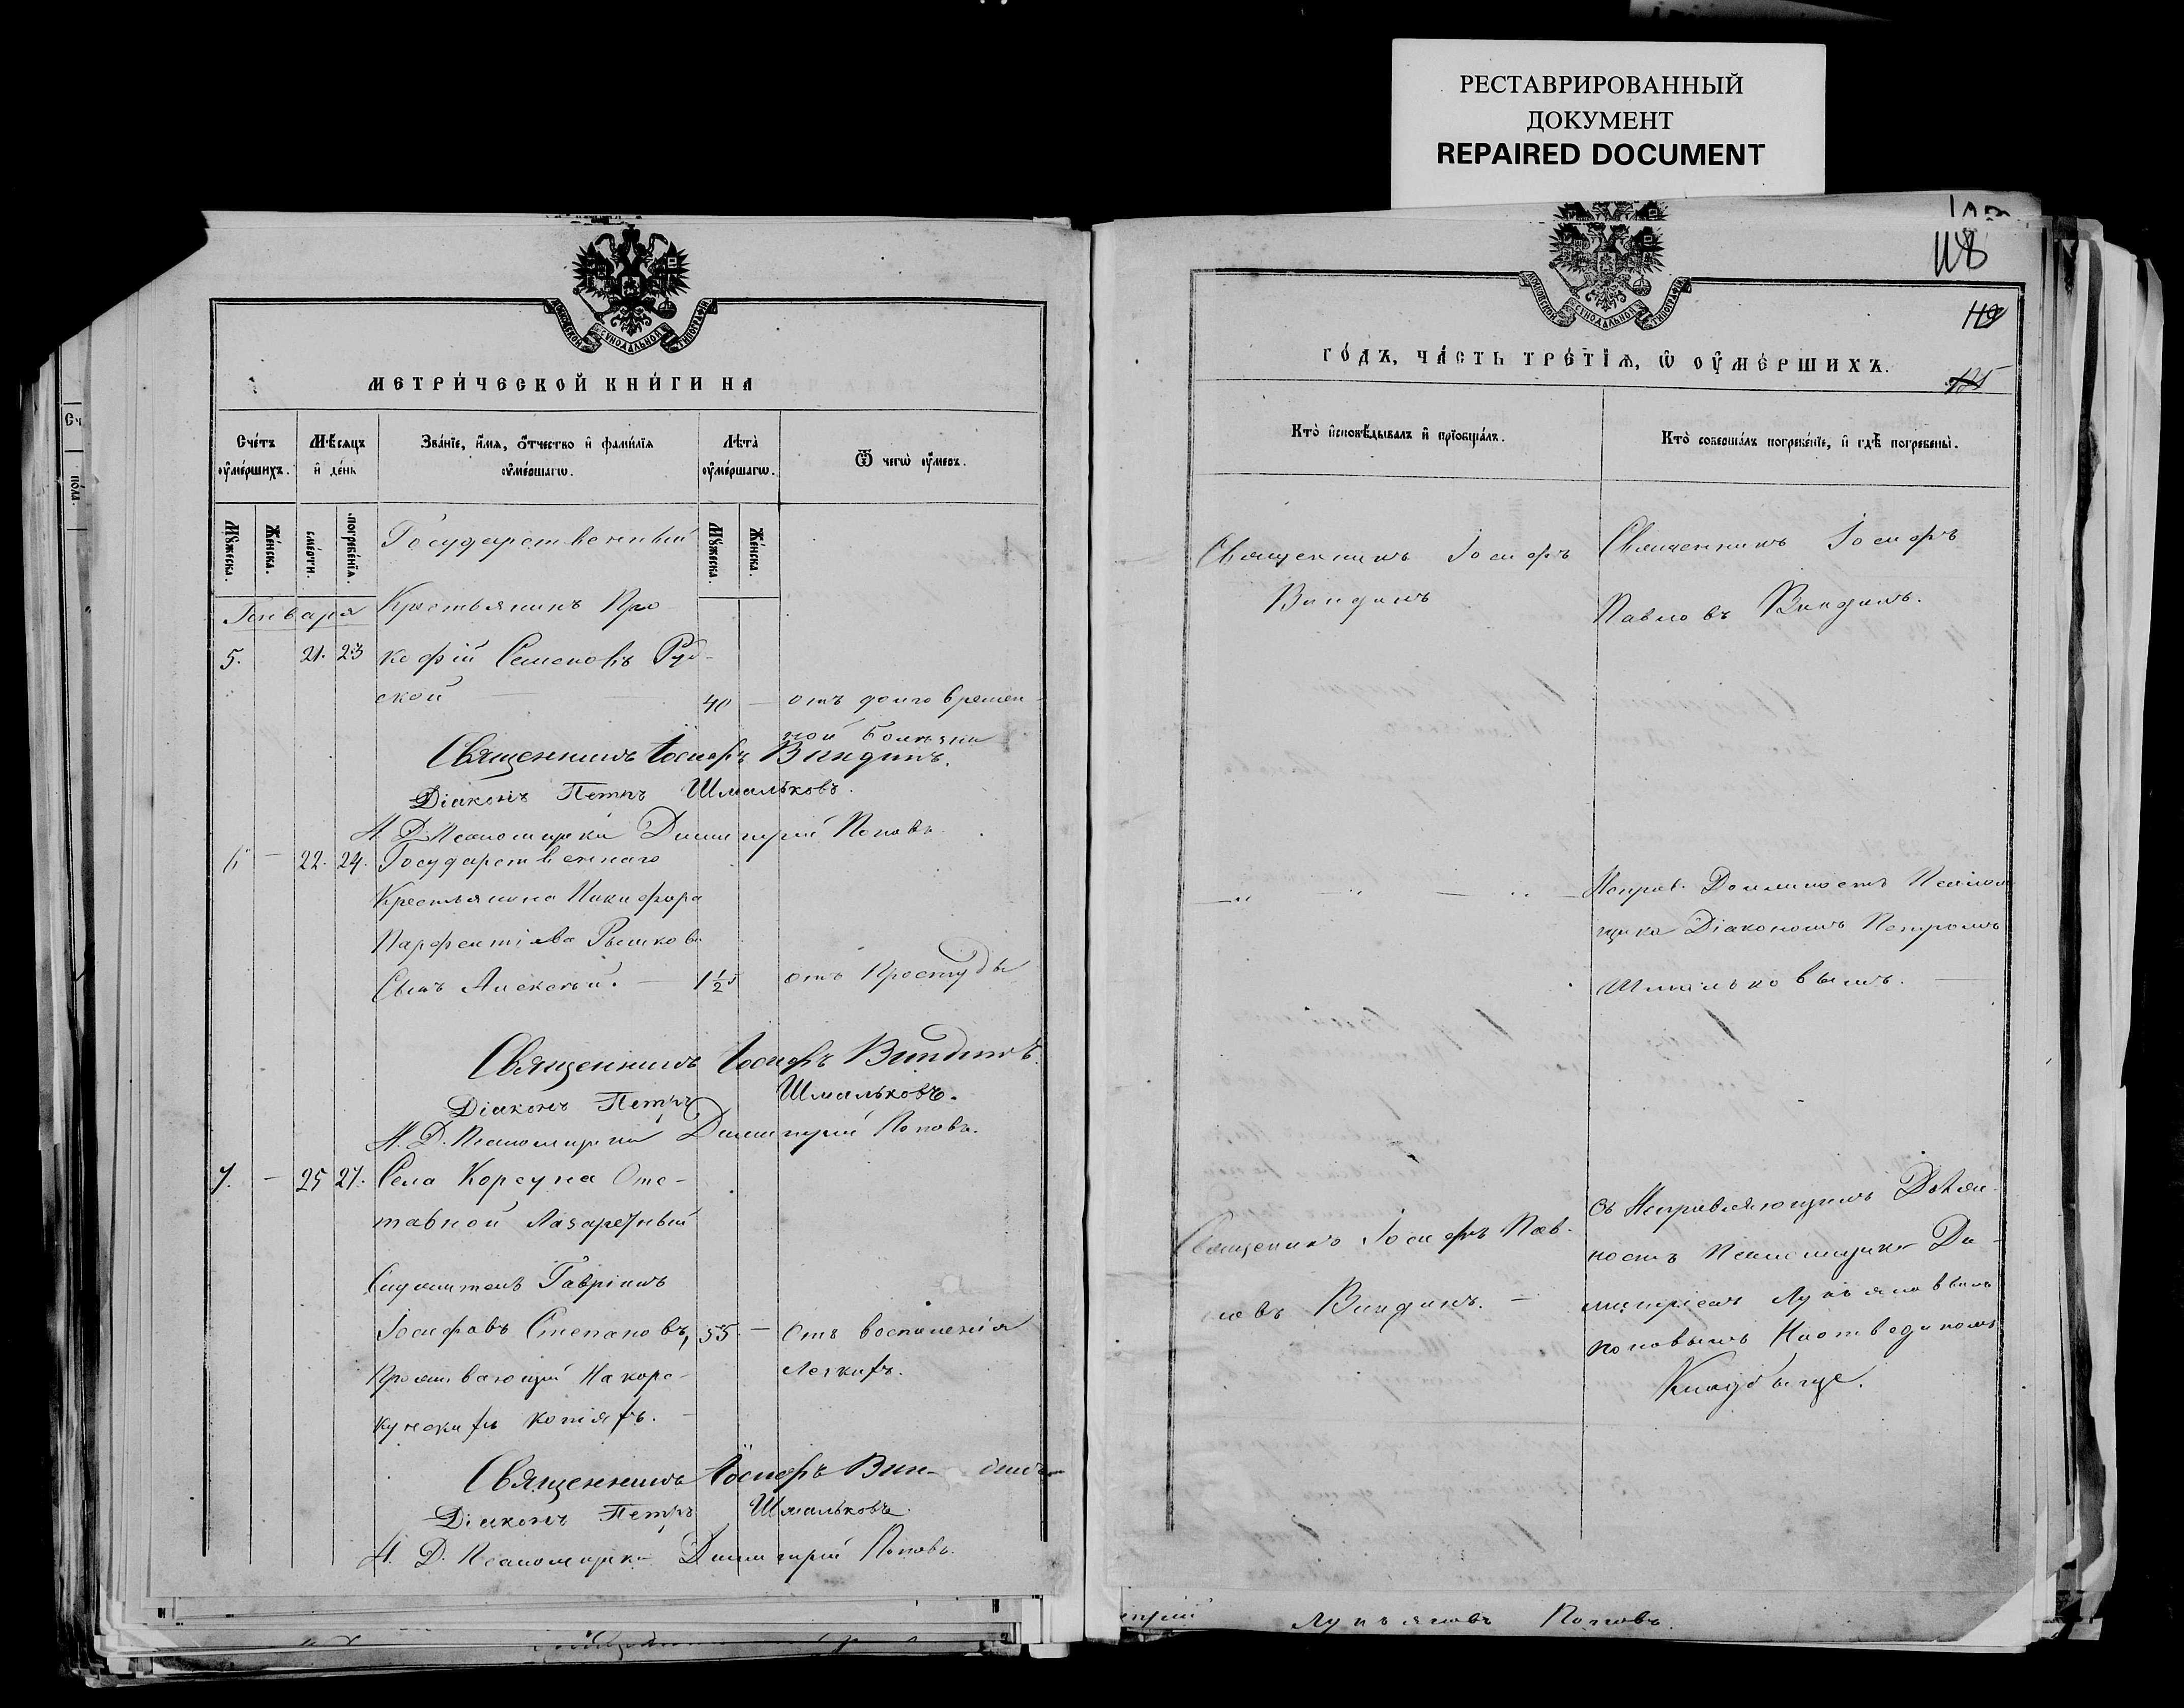 РЕСТАВРИРОВАННЫЙ
ДОКУМЕНТ
REPAIRED DOCUMENT
МОСКОВСКОЙ СѴНОДАЛЬНОЙ ТИПОГРАФІИ
МЕТРИ́ЧЕСКОЙ КНИ́ГИ НА
Сче́тъ ᲂу҆ме́ршихъ.
Мѣ́сяцъ и҆ де́нь
Зва́нїе, и҆́мя, ѻ҆́тчество и҆ фами́лїя ᲂу҆ме́ршагѡ.
Лѣ́та ᲂу҆ме́ршагѡ.
Ѿ чегѡ̀ ᲂу҆́меръ.
Мꙋ́жеска.
Же́нска.
сме́рти.
погребе́нїя.
Мꙋ́жеска.
Же́нска.
Государственный
Января
Крестьянинъ Про
5. 21. 23 кофій Семеновъ Руд-
ской — 40 — отъ долговремен-
ной болѣзни
Священникъ Іосифъ Виндинъ.
Діаконъ Петръ Шмальковъ.
И. Д. Псаломщика Димитрій Поповъ.
6 — 22. 24. Государственнаго
Крестьянина Никифора
Парфентіева Рышкова
Сынъ Алексѣй. — 1½ отъ Простуды
Священникъ Іосифъ Виндинъ.
Діаконъ Петръ Шмальковъ.
И. Д. Псаломщика Димитрій Поповъ.
7. — 25 27. Села Корсуна Отс-
тавной Лазаретный
Служитель Гавріилъ
Іосифовъ Степановъ, 55 — Отъ воспаленія
Проживающій На корс- легкихъ.
кунскихъ копіяхъ. —
Священникъ Іосифъ Виндинъ
Діаконъ Петръ Шмальковъ.
И. Д. Псаломщика Димитрій Поповъ.
118
119
МОСКОВСКОЙ СѴНОДАЛЬНОЙ ТИПОГРАФІИ
ГО́ДЪ, ЧА́СТЬ ТРЕ́ТЇѦ, Ѡ҆ ОУ҆МЕ́РШИХЪ.
125
Кто̀ и҆сповѣ́дывалъ и҆ прїѡбща́лъ.
Кто̀ соверша́лъ погребе́нїе, и҆ гдѣ̀ погребены̀.
Священникъ Іосифъ
Виндинъ
Священникъ Іосифъ
Павловъ Виндинъ.
— " — " — " —
Исправ. Должность Псалом
щика Діакономъ Петромъ
Шмальковымъ. —
Священникъ Іосифъ Пав-
ловъ Виндинъ. —
Съ Исправляющимъ Долж-
ность Псаломщика Ди-
митріемъ Лукьяновымъ
Поповымъ На отведеномъ
Кладбище.
Лукьяновъ Поповъ.